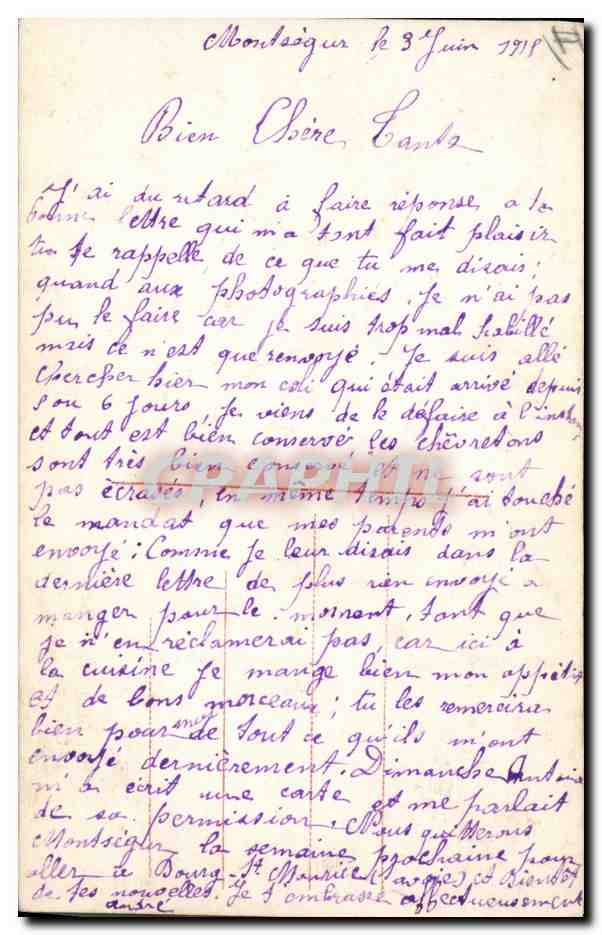 Montségur le 3 Juin 1915
Bien Chère Tante
J'ai du retard à faire réponse a ta
bonne lettre qui m'a tant fait plaisir
tu te rappelle de ce que tu me disais;
quand aux photographies, Je n'ai pas
pu le faire car je suis trop mal habillé
mais ce n'est que renvoyé. Je suis allé
chercher hier mon coli qui était arrivé depuis
5 ou 6 jours, Je viens de le défaire à l'instant
et tout est bien conservé les chevretons
sont très bien conservé et ne sont
pas écrasés, en même temps j'ai touché
le mandat que mes parents m'ont
envoyé; Comme je leur disais dans la
dernière lettre de plus rien envoyé a
manger pour le moment, tant que
je n'en réclamerai pas, car ici à
la cuisine Je mange bien mon appétit
et de bons morceaux; tu les remerciera
bien pour moi de tout ce qu'ils m'ont
envoyé dernièrement. Dimanche Antoine
m'a écrit une carte et me parlait
de sa permission. Nous quitterons
Montségur la semaine prochaine pour
aller à Bourg-St Maurice (Savoie) et Bientôt
de tes nouvelles. Je t'embrasse affectueusement
andré
CRAPHIL